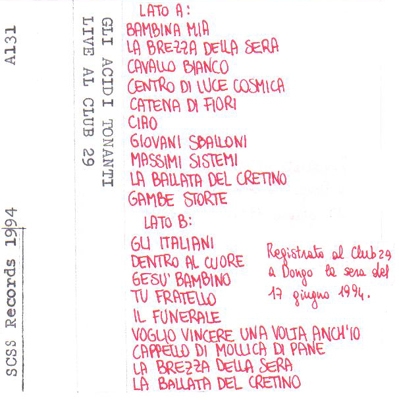 A131
SCSS Records 1994
GLI ACIDI TONANTI
LIVE AL CLUB 29
LATO A:
BAMBINA MIA
LA BREZZA DELLA SERA
CAVALLO BIANCO
CENTRO DI LUCE COSMICA
CATENA DI FIORI
CIAO
GIOVANI SBALLONI
MASSIMI SISTEMI
LA BALLATA DEL CRETINO
GAMBE STORTE
LATO B:
GLI ITALIANI
DENTRO AL CUORE
GESU' BAMBINO
TU FRATELLO
IL FUNERALE
VOGLIO VINCERE UNA VOLTA ANCH'IO
CAPPELLO DI MOLLICA DI PANE
LA BREZZA DELLA SERA
LA BALLATA DEL CRETINO
Registrato al Club 29
a Dongo la sera del
17 giugno 1994.